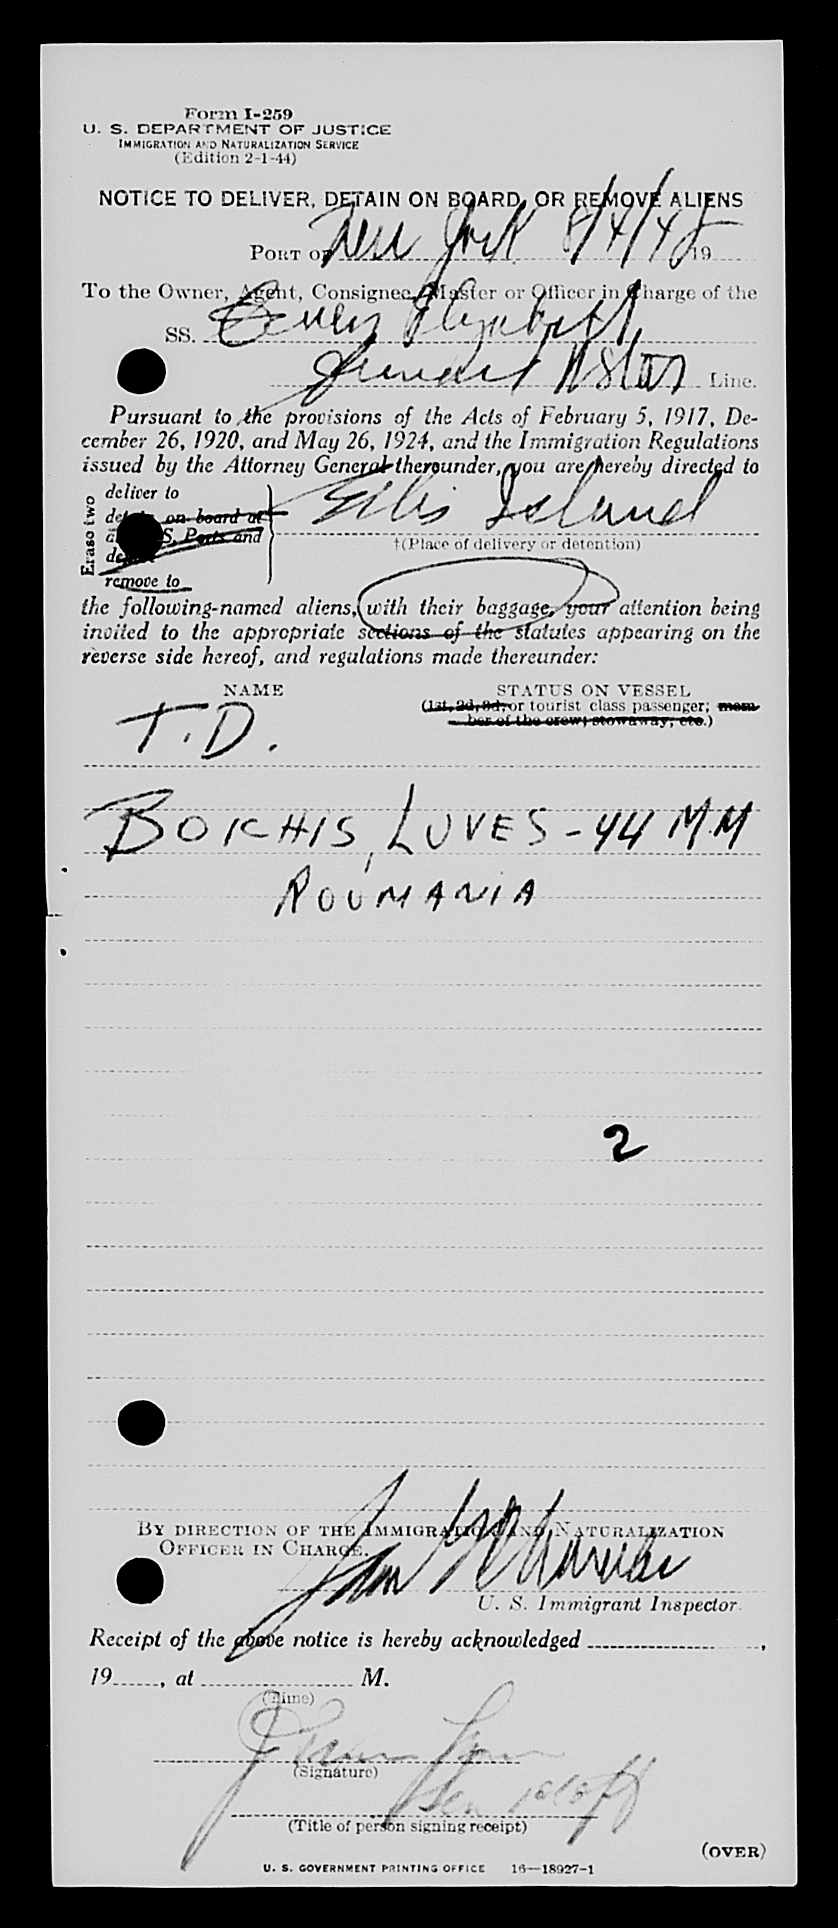 Form I-259
U. S. DEPARTMENT OF JUSTICE
IMMIGRATION AND NATURALIZATION SERVICE
(Edition 2-1-44)
NOTICE TO DELIVER, DETAIN ON BOARD, OR REMOVE ALIENS
PORT OF New York 8/4/48 19
To the Owner, Agent, Consignee, Master or Officer in Charge of the
SS. Queen Elizabeth
Cunard W Star Line.
Pursuant to the provisions of the Acts of February 5, 1917, De-
cember 26, 1920, and May 26, 1924, and the Immigration Regulations
issued by the Attorney General thereunder, you are hereby directed to
Erase two
deliver to
detain on board at
S. Ports and
remove to
Ellis Island
†(Place of delivery or detention)
the following-named aliens, with their baggage, your attention being
invited to the appropriate sections of the statutes appearing on the
reverse side hereof, and regulations made thereunder:
NAME STATUS ON VESSEL
(1st, 2d, 3d, or tourist class passenger; mem-
ber of the crew; stowaway, etc.)
T.D.
BOICHIS, LUVES - 44 M M
ROUMANIA
2
BY DIRECTION OF THE IMMIGRATION AND NATURALIZATION
OFFICER IN CHARGE.
U. S. Immigrant Inspector.
Receipt of the above notice is hereby acknowledged ,
19 , at M.
(Time)
(Signature)
(Title of person signing receipt)
(OVER)
U. S. GOVERNMENT PRINTING OFFICE 16—18927-1